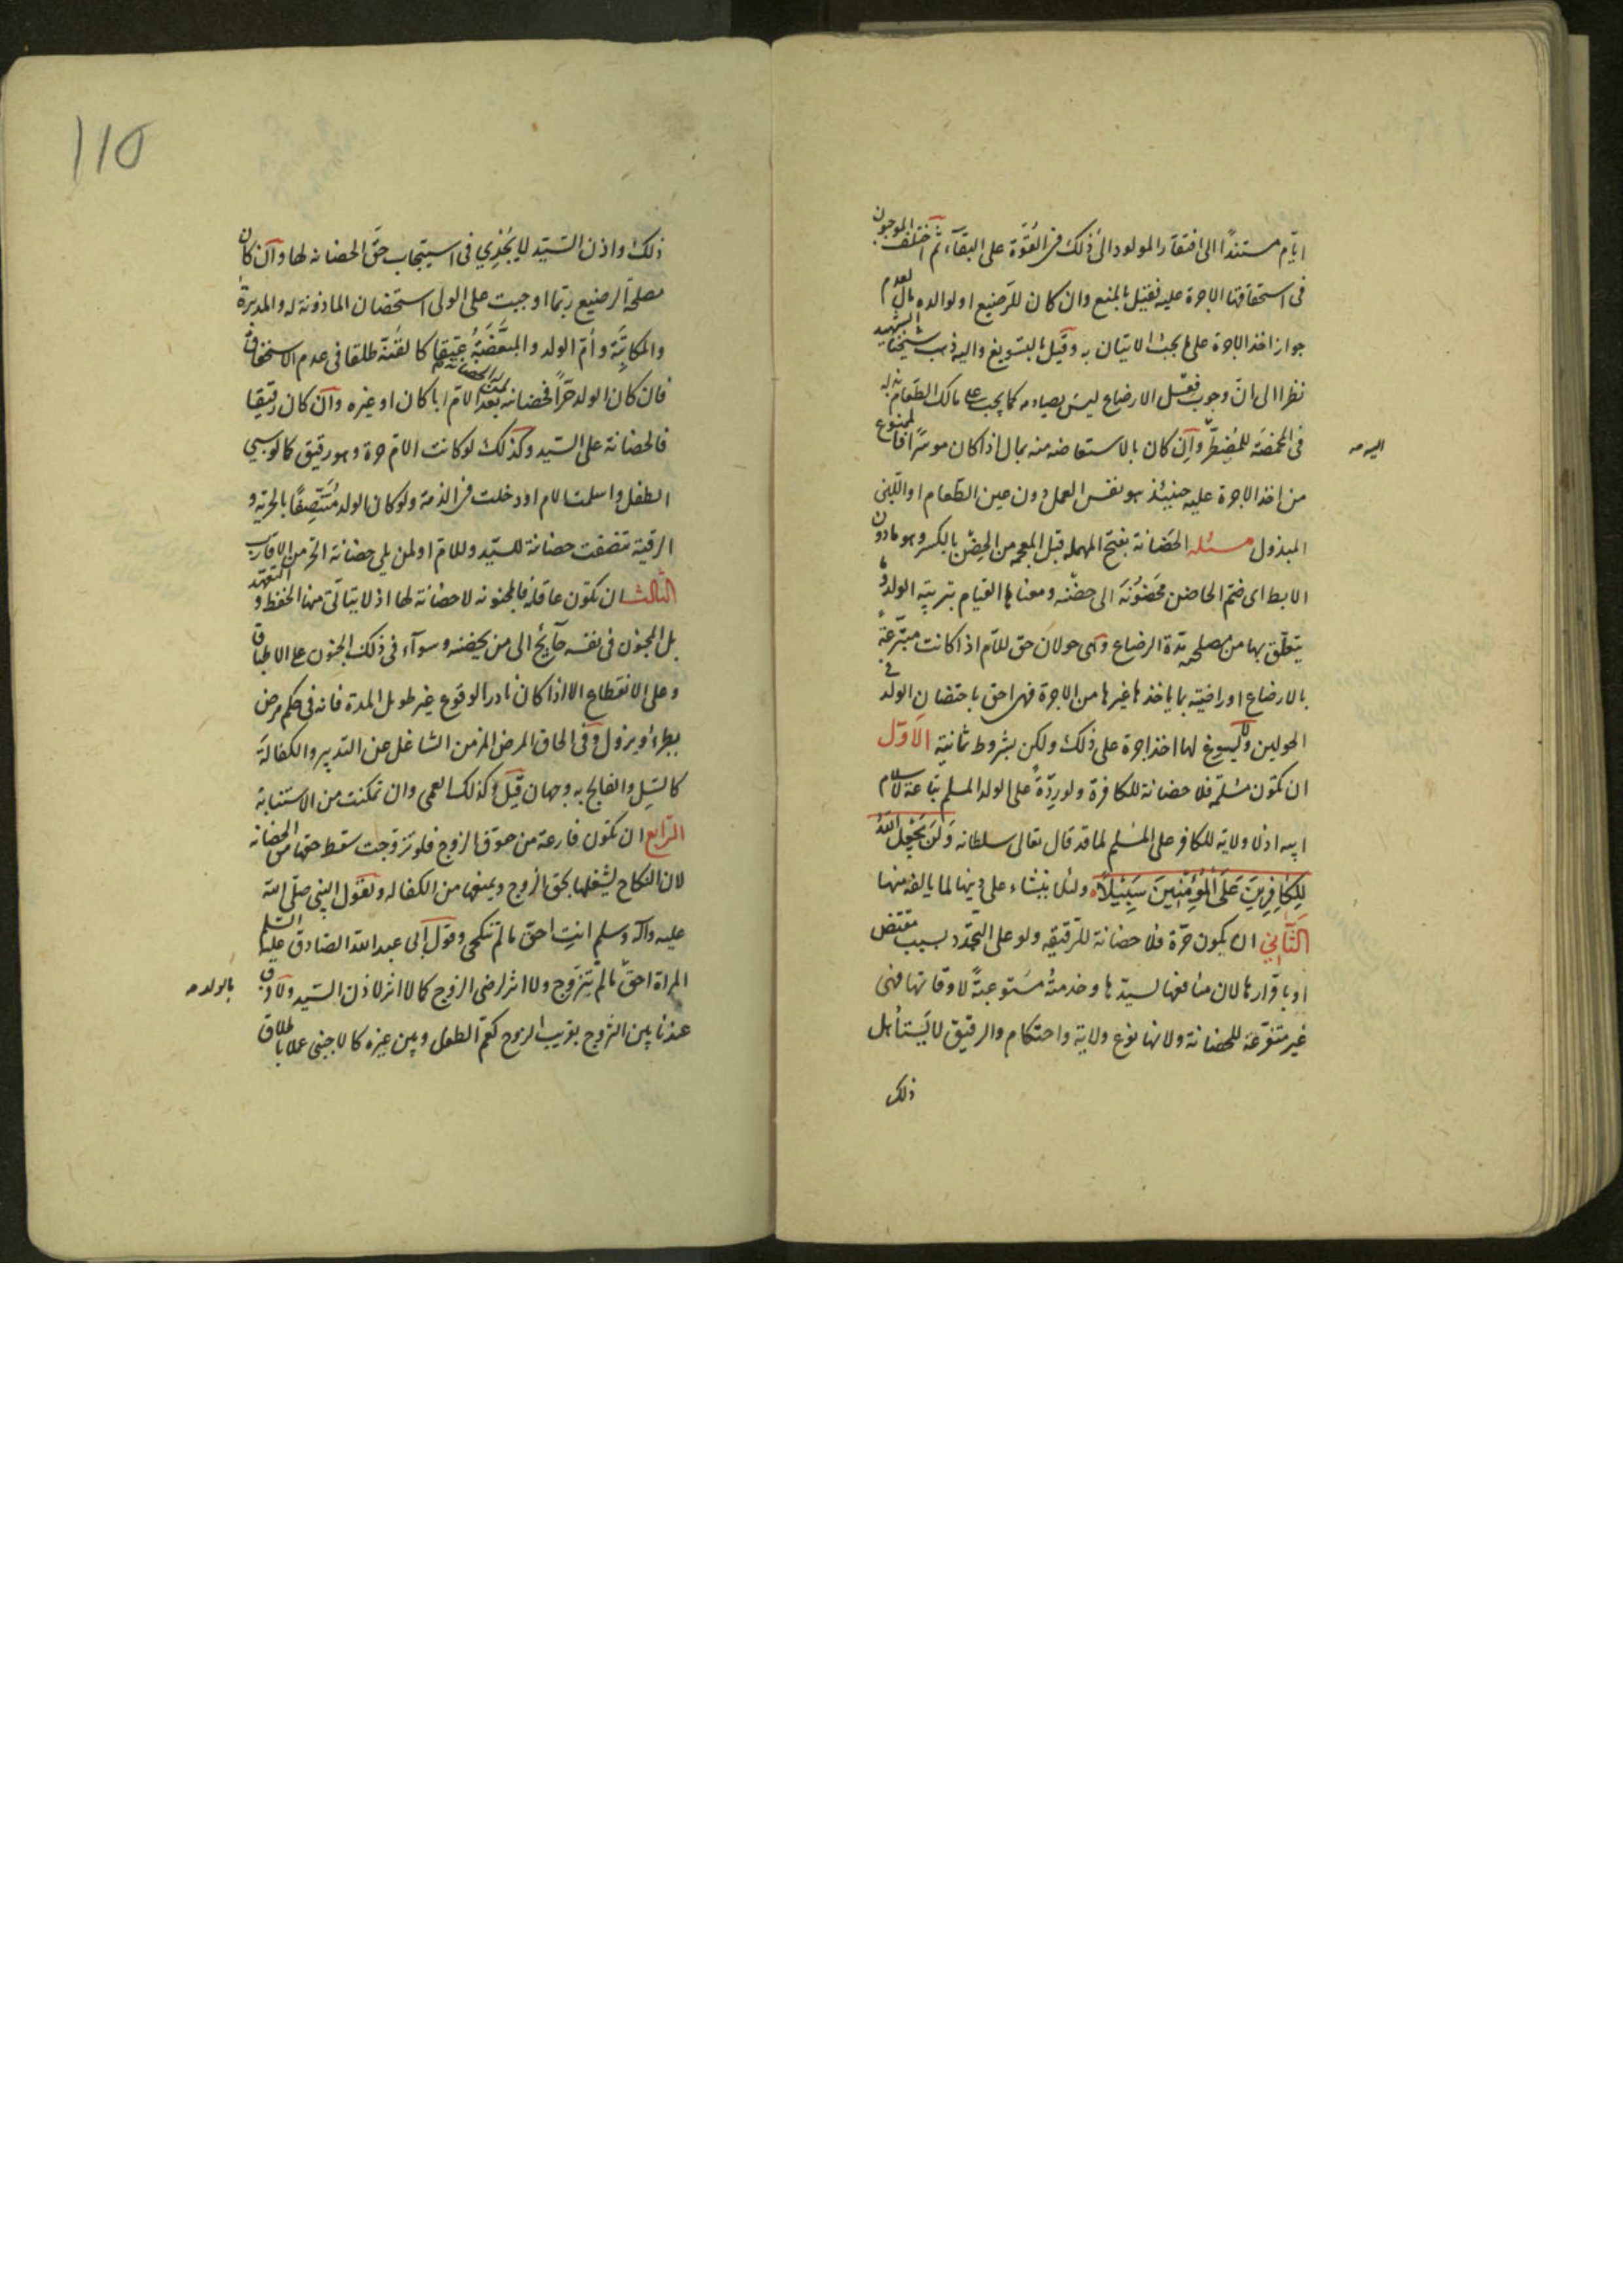 ايّام مستندًا الى افتقار المولود الى ذلك فى القوّة على البقآء ثم اختلف الموجبون
فى استحقاقها الاجرة عليه فقيل بالمنع وان كان للرّضيع او لوالده مال لعدم
جواز اخذ الاجرة على ما يجب الاتيان به وقيل بالتسويغ واليه ذهب شيخنا الشهيد
نظرا الى انّ وجوب فعل الارضاع ليس يصادمه كما يجب على مالك الطّعام بذله
فى المخمصة للمضطرّ وان كان بالاستعاضة منه بمال اذا كان موسرًا فالممنوع
اليه صه
من اخذ الاجرة عليه حينئذ هو نفس العمل دون عين الطّعام او اللبن
المبذول مسئله الحضانة بفتح المهمله قبل المعجمه من الحضن بالكسر وهو مادون
الابط اى ضمّ الحاضن محضونه الى حضنه ومعناها القيام بتربيته الولد وما
يتعلّق بها من مصلحته مدّة الرضاع وهى حولان حق للامّ اذا كانت متبرّعة
بالارضاع او راضية بما ياخذها غيرها من الاجرة فهى احق باحتضان الولد فى
الحولين ولا يسوغ لها اخذ اجرة على ذلك ولكن بشروط ثمانية الاوّل
ان تكون مسلمة فلا حضانة للكافرة ولو ردّة على الولد المسلم بتباعة لاسلام
ابيه اذ لا ولاية للكافر على المسلم لما قد قال تعالى سلطانه وَلَنْ يَجْعَلَ اللهُ
لِلْكافِرِينَ عَلَى الْمُؤْمِنِينَ سَبِيلاً ولئلا ينشاء على دينها لما يالفه منها
الثّانى ان يكون حرّة فلا حضانة للرقيقه ولو على التجدّد بسبب مقتض
او باقرارها لان منافعها لسيّدها وخدمته مستوعبةً لاوقاتها فهى
غير متفرّغة للحضانة ولانها نوع ولاية واحتكام والرقيق لا يستأهل
ذلك
110
ذلك واذن السيّد لا يجدي فى استيجاب حقّ الحضانه لها وان كان
مصلحة الرضيع ربّما اوجبت على الولى استحضان الماذونة له والمدبرة
والمكاتبة وأمّ الولد والمتبعّضة عتيقا كالقنّة طلقا فى عدم الاستحقاق
فان كان الولد حرّاً فحضانته لمن له الحضانة بعد الامّ ابا كان او غيره وان كان رقيقا
فالحضانة على السيّد وكذلك لو كانت الامّ حرة وهو رقيق كما لو سبي
الطفل واسلمت الام او دخلت فى الذمة ولو كان الولد متّصفًا بالحرية و
الرقية تنصفت حضانة للسيّد وللامّ او لمن يلى حضانة الحرّ من الاقارب
الثّالث ان تكون عاقلة فالمجنونه لا حضانة لها اذ لا يتاتّى منها الحفظ والتعهد
بل المجنون فى نفسه حآئج الى من يحضنه وسوآء فى ذلك الجنون على الاطباق
وعلى الانقطاع الا اذا كان نادر الوقوع غير طويل المدة فانه فى حكم مرض
يطرء ويزول وفى الحاق المرض المزمن الشاغل عن التدبير والكفالة
كالسّل والفالج به وجهان قيل وكذلك العمى وان تمكنت من الاستنابة
الرّابع ان تكون فارغة من حقوق الزوج فلو تزوجت سقط حقها من الحضانة
لان النكاح يشغلها بحق الزوج ويمنعها من الكفاله ولقول النبى صلّى الله
عليه وآله وسلم انت احق ما لم تنكحى وقول ابى عبد الله الصّادق عليه السّلم
المراة احقّ ما لم تتزوج ولا اثر لرضى الزوج كما لا اثر لاذن السّيد ولا فرق
بالولد صه
عندنا بين الزّوج بقريب الزوج كعمّ الطفل وبين غيره كالاجنبى عملا باطلاق